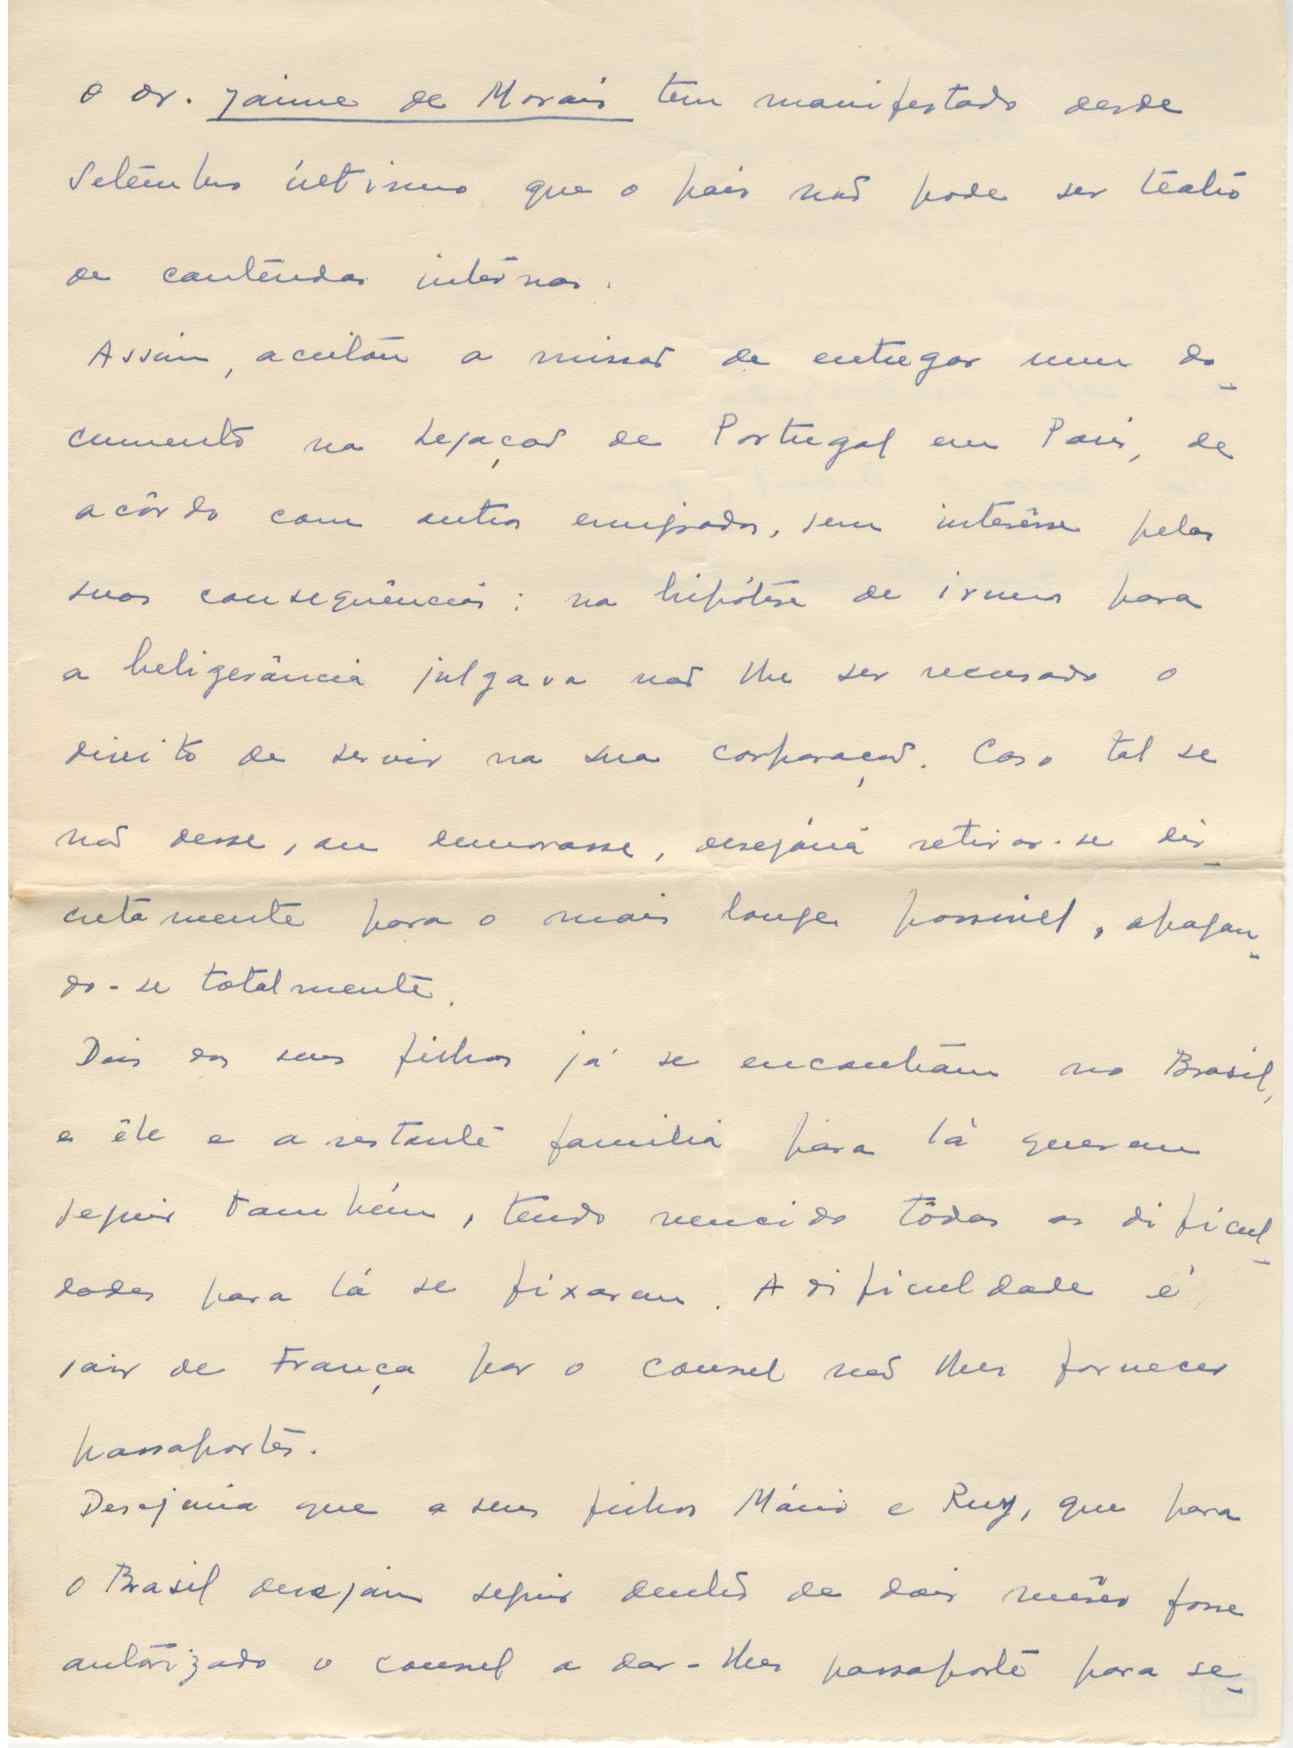 O Dr. Jaime de Morais tem manifestado desde
Setembro último que o país não pode ser teatro
de contendas internas.
Assim, aceitou a missão de entregar um do-
cumento na Legação de Portugal em Paris, de
acôrdo com outros emigrados, sem interêsse pelas
suas consequências: na hipótese de irmos para
a beligerância julgava não lhe ser recusado o
direito de servir na sua corporação. Caso tal se
não desse, ou demorasse, desejaria retirar-se dis-
cretamente para o mais longe possivel, apagan-
do-se totalmente.
Dois dos seus filhos já se encontram no Brasil,
e êle e a restante familia para lá querem
seguir tambêm, tendo vencido tôdas as dificul-
dades para lá se fixarem. A dificuldade é
sair de França por o consul não lhes fornecer
passaportes.
Desejaria que a seus filhos Mário e Ruy, que para
o Brasil desejam seguir dentro de dois mêses fosse
autorizado o consul a dar-lhes passaporte para se-